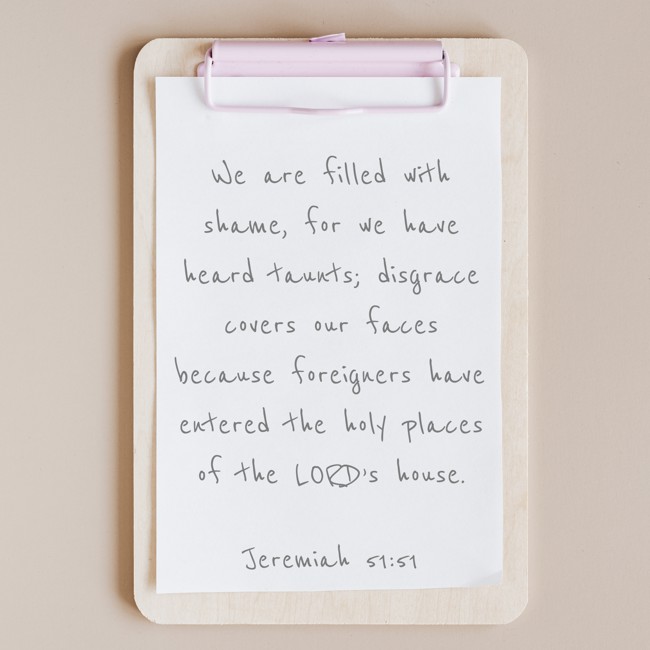 We are filled with
shame, for we have
heard taunts; disgrace
covers our faces
because foreigners have
entered the holy places
of the LORD's house.
Jeremiah 51:51